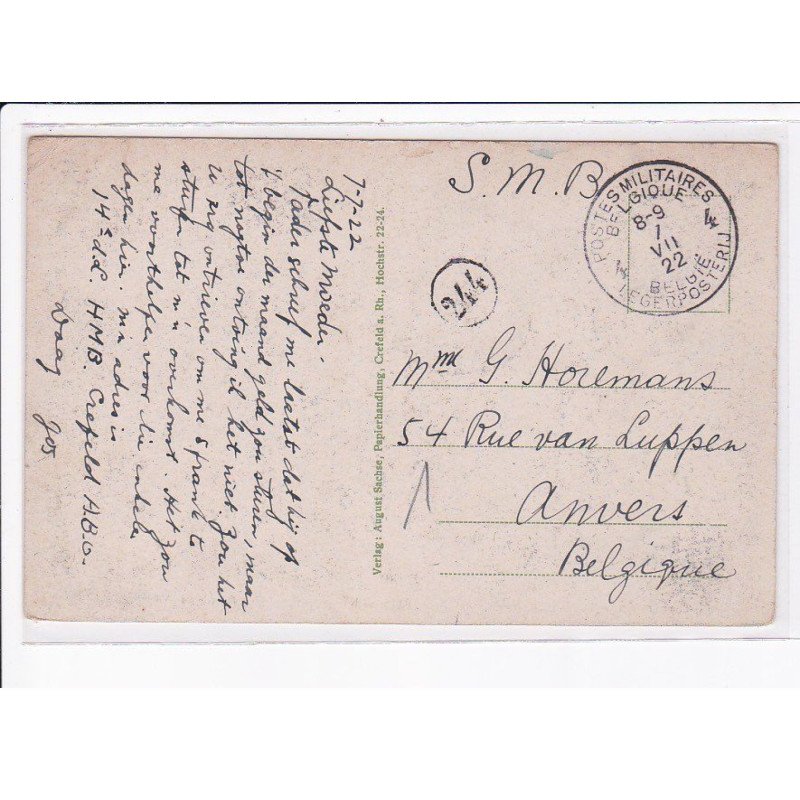 7-7-22
Liefste Moeder.
Vader schreef me laatst dat hij op
't begin der maand geld zou sturen, maar
tot nogtoe ontving ik het niet. Zou het
u erg ontrieven om me 5 frank te
sturen tot m'n overkomst. Het zou
me voorthelpen voor die enkele
dagen hier. m'n adres is
14e d.d. HMB. Crefeld A.B.O.
Daag
Jos
Verlag: August Sachse, Papierhandlung, Crefeld a. Rh., Hochstr. 22-24.
S. M. B
POSTES MILITAIRES
BELGIQUE
4
8-9
7
VII
22
BELGIË
LEGERPOSTERIJ
244
Mme G. Horemans
54 Rue van Luppen
Anvers
Belgique